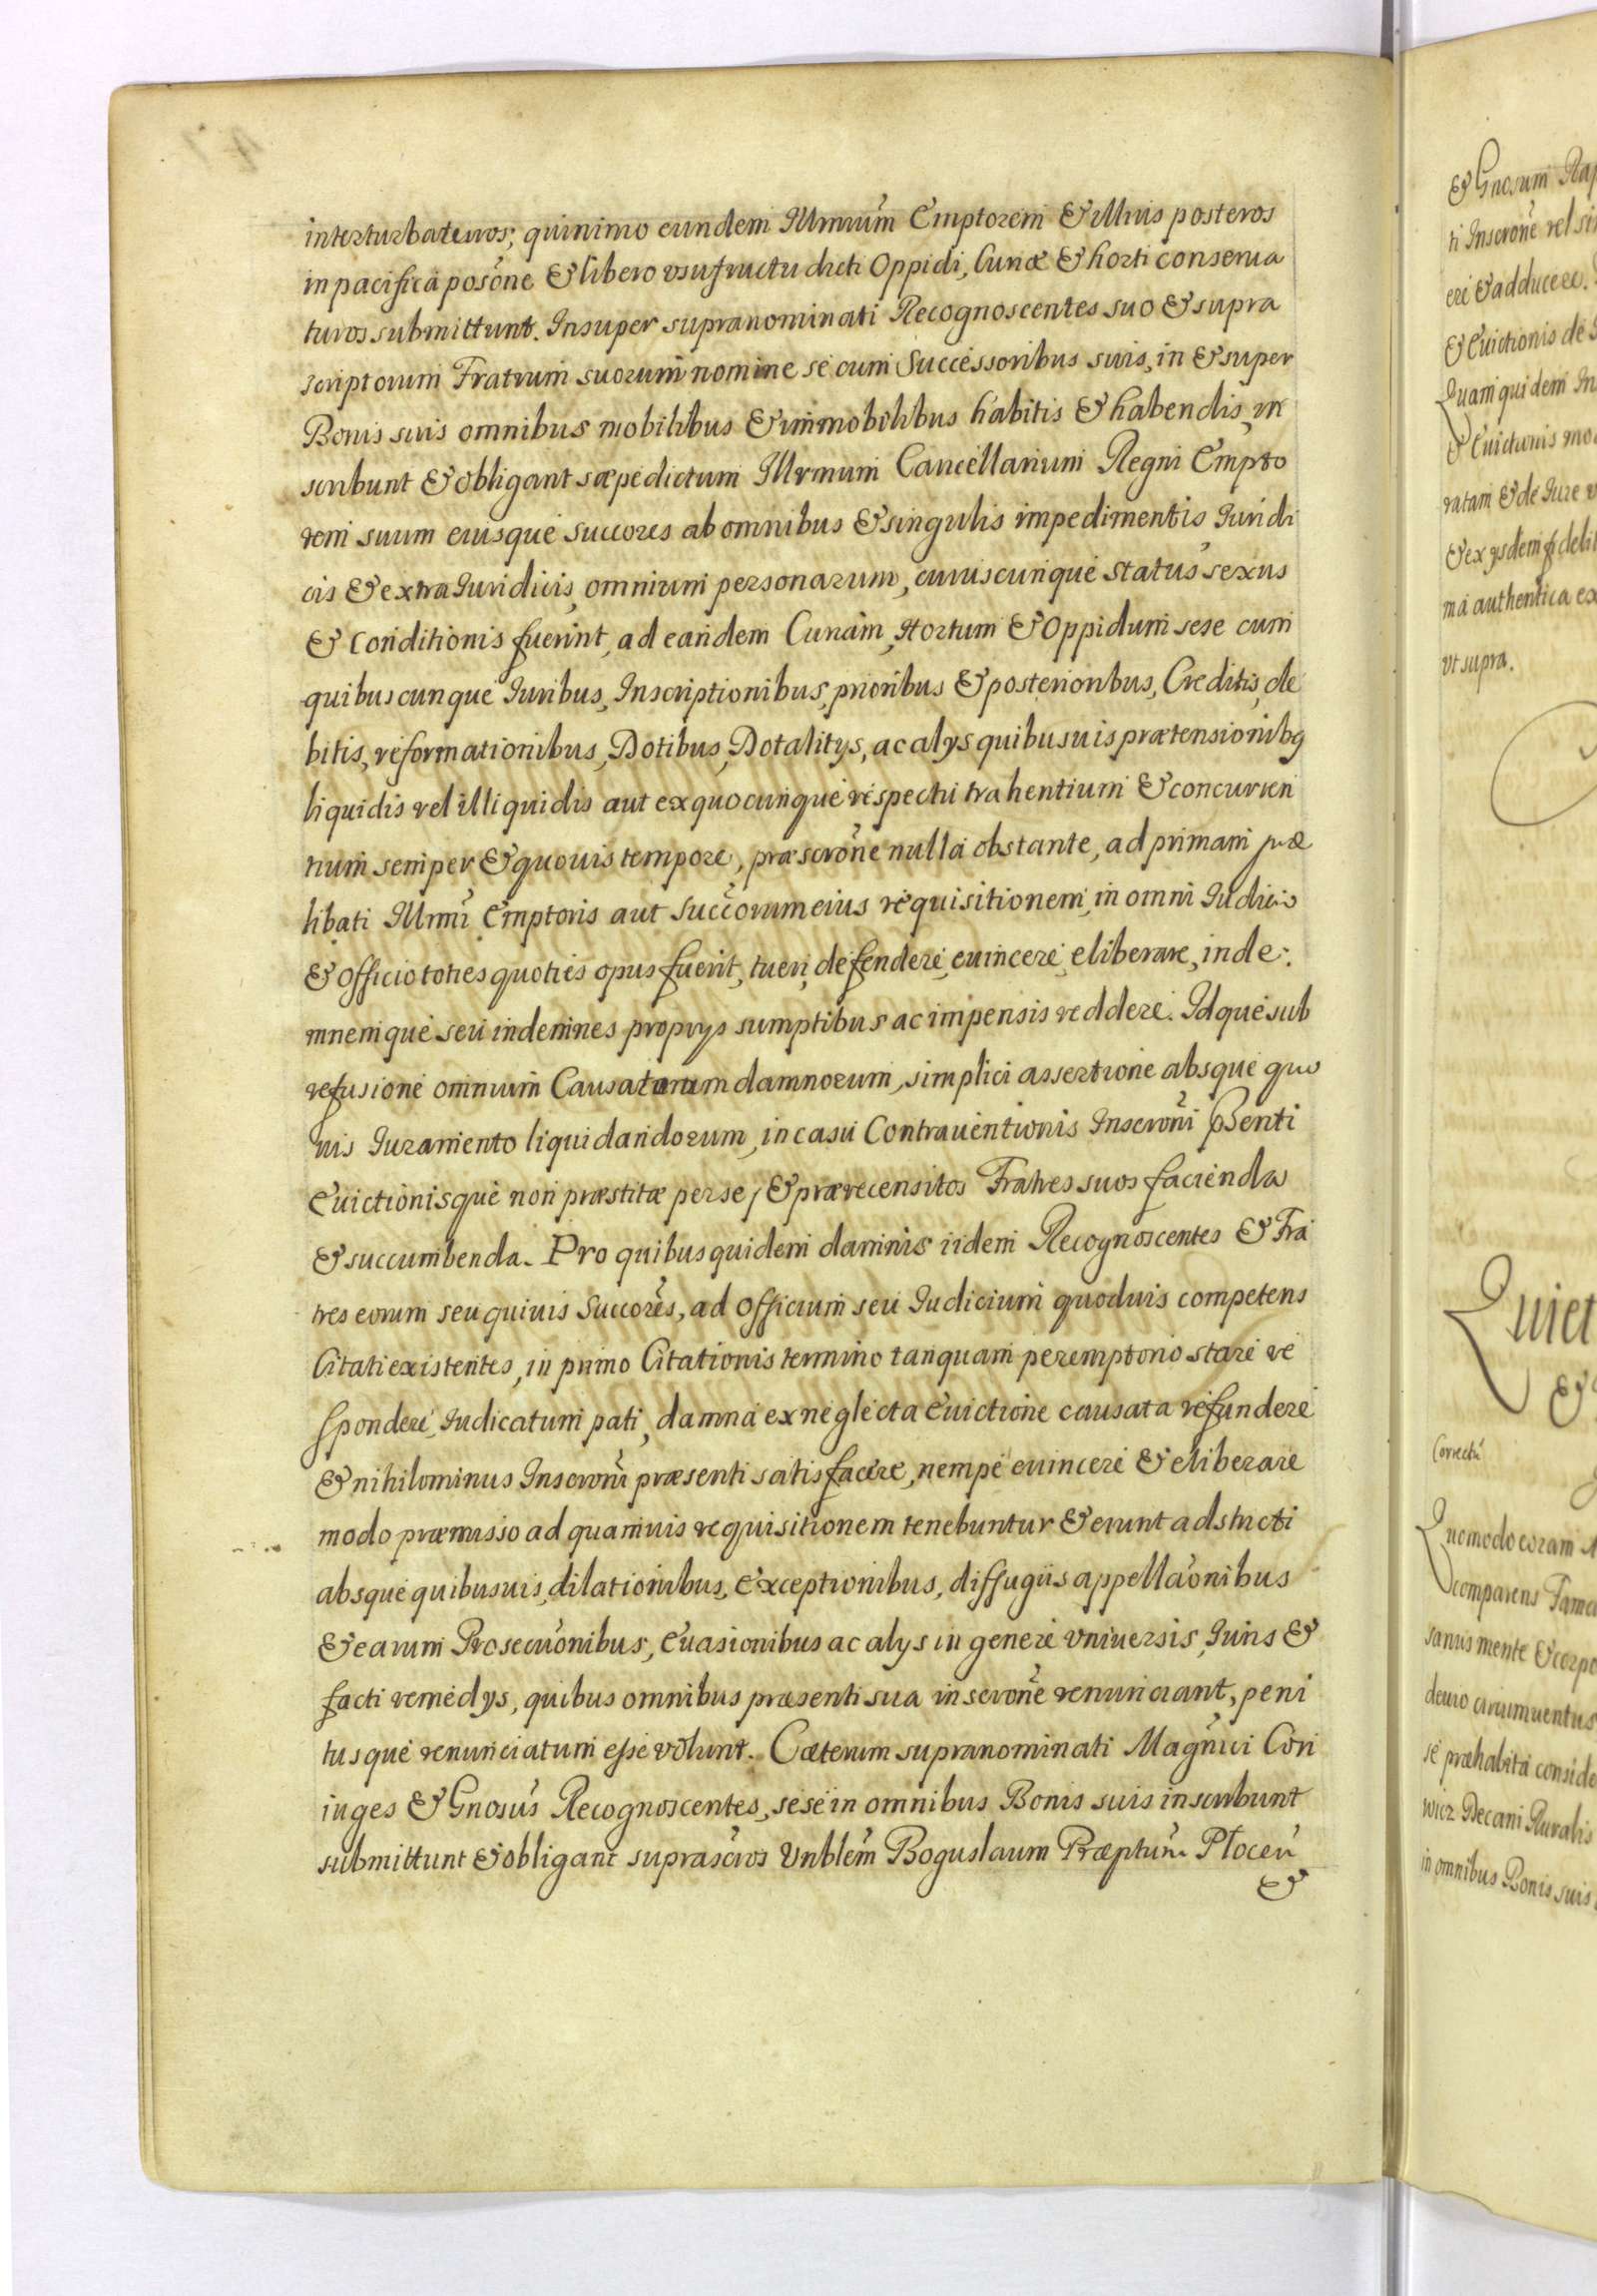 interturbaturos; quinimo eundem Illmum Emptorem & illius posteros
in pacifica posone & libero vsufructu dicti Oppidi, Curiæ & horti conserua
turos submittunt. Insuper supranominati Recognoscentes suo & supra
scriptorum Fratrum suorum nomine se cum Successoribus suis, in & super
Bonis suis omnibus mobilibus & immobilibus habitis & habendis, in
scribunt & obligant sæpedictum Illrmum Cancellarium Regni Empto
rem suum eiusque succores ab omnibus & singulis impedimentis Iuridi
cis & extra Iuridicis, omnium personarum, cuiuscunque status sexus
& Conditionis fuerint, ad eandem Curiam, Hortum & Oppidum sese cum
quibuscunque Iuribus, Inscriptionibus, prioribus & posterioribus, Creditis, de
bitis, reformationibus, Dotibus, Dotalitys, ac alys quibusuis prætensionibq
liquidis vel illiquidis aut ex quocunque respectu trahentium & concurren
tium semper & quouis tempore, præscrone nulla obstante, ad primam præ
libati Illrmi Emptoris aut Succorum eius requisitionem, in omni Iudicio
& Officio toties quoties opus fuerit, tueri, defendere, euincere, eliberare, inde.
mnemque seu indemnes proprys sumptibus ac impensis reddere. Idque sub
refusione omnium Causatorum damnorum, simplici assertione absque quo
uis Iuramento liquidandorum, in casu Contrauentionis Inscroni pßenti
Euictionisque non præstitæ per se, & prærecensitos Fratres suos facienda
& succumbenda. Pro quibus quidem damnis iidem Recognoscentes & Fra
tres eorum seu quiuis Succores, ad Officium seu Iudicium quoduis competens
Citati existentes, in primo Citationis termino tanquam peremptorio stare re
spondere, Iudicatum pati, damna ex neglecta Euictione causata refundere
& nihilominus Inscroni præsenti satisfacere, nempe euincere & eliberare
modo præmisso ad quamuis requisitionem tenebuntur & erunt adstricti
absque quibusuis, dilationibus, Exceptionibus, diffugiis appellaonibus
& earum Prosecuonibus, Euasionibus ac alys in genere vniuersis, Iuris &
facti remedys, quibus omnibus præsenti sua inscrone renunciant, peni
tusque renunciatum esse volunt. Cæterum supranominati Magnici Con
iuges & Gnosus Recognoscentes, sese in omnibus Bonis suis inscribunt
submittunt & obligant suprascros Vnblem Boguslaum Præptum Plocen
&
& Gnosum
ti Inscrone vel
eri & adducere.
& Euictionis de
Quam quidem
& Euictionis
ratam & de Iure
& ex ysdem
ma authentica
vt supra.
Quiet
&
Correctu
Quomodo coram
comparens
sanus mente & corpo
deuio circumuentus
se præhabita conside
wicz Decani Ruralis
in omnibus Bonis suis